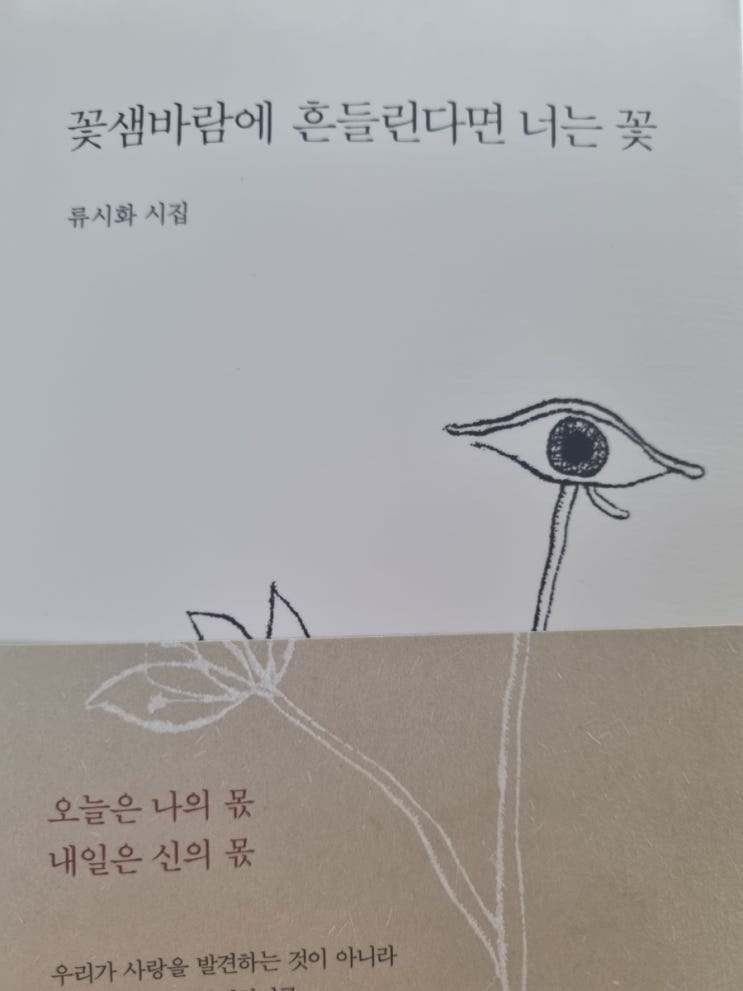 꽃샘바람에 흔들린다면 너는 꽃
류시화 시집
오늘은 나의 몫
내일은 신의 몫
우리가 사랑을 발견하는 것이 아니라